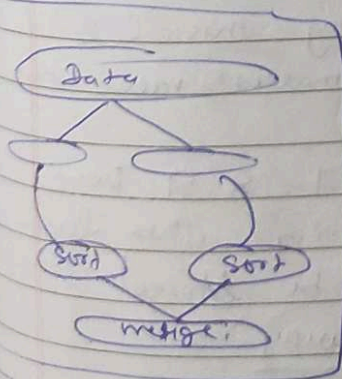 Data
Sort Sort
merge: